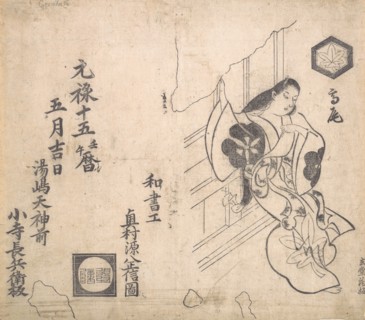 高尾
和畫工
奥村源八政信圖
元禄十五壬午暦
五月吉日
湯嶋天神前
小寺長兵衛板